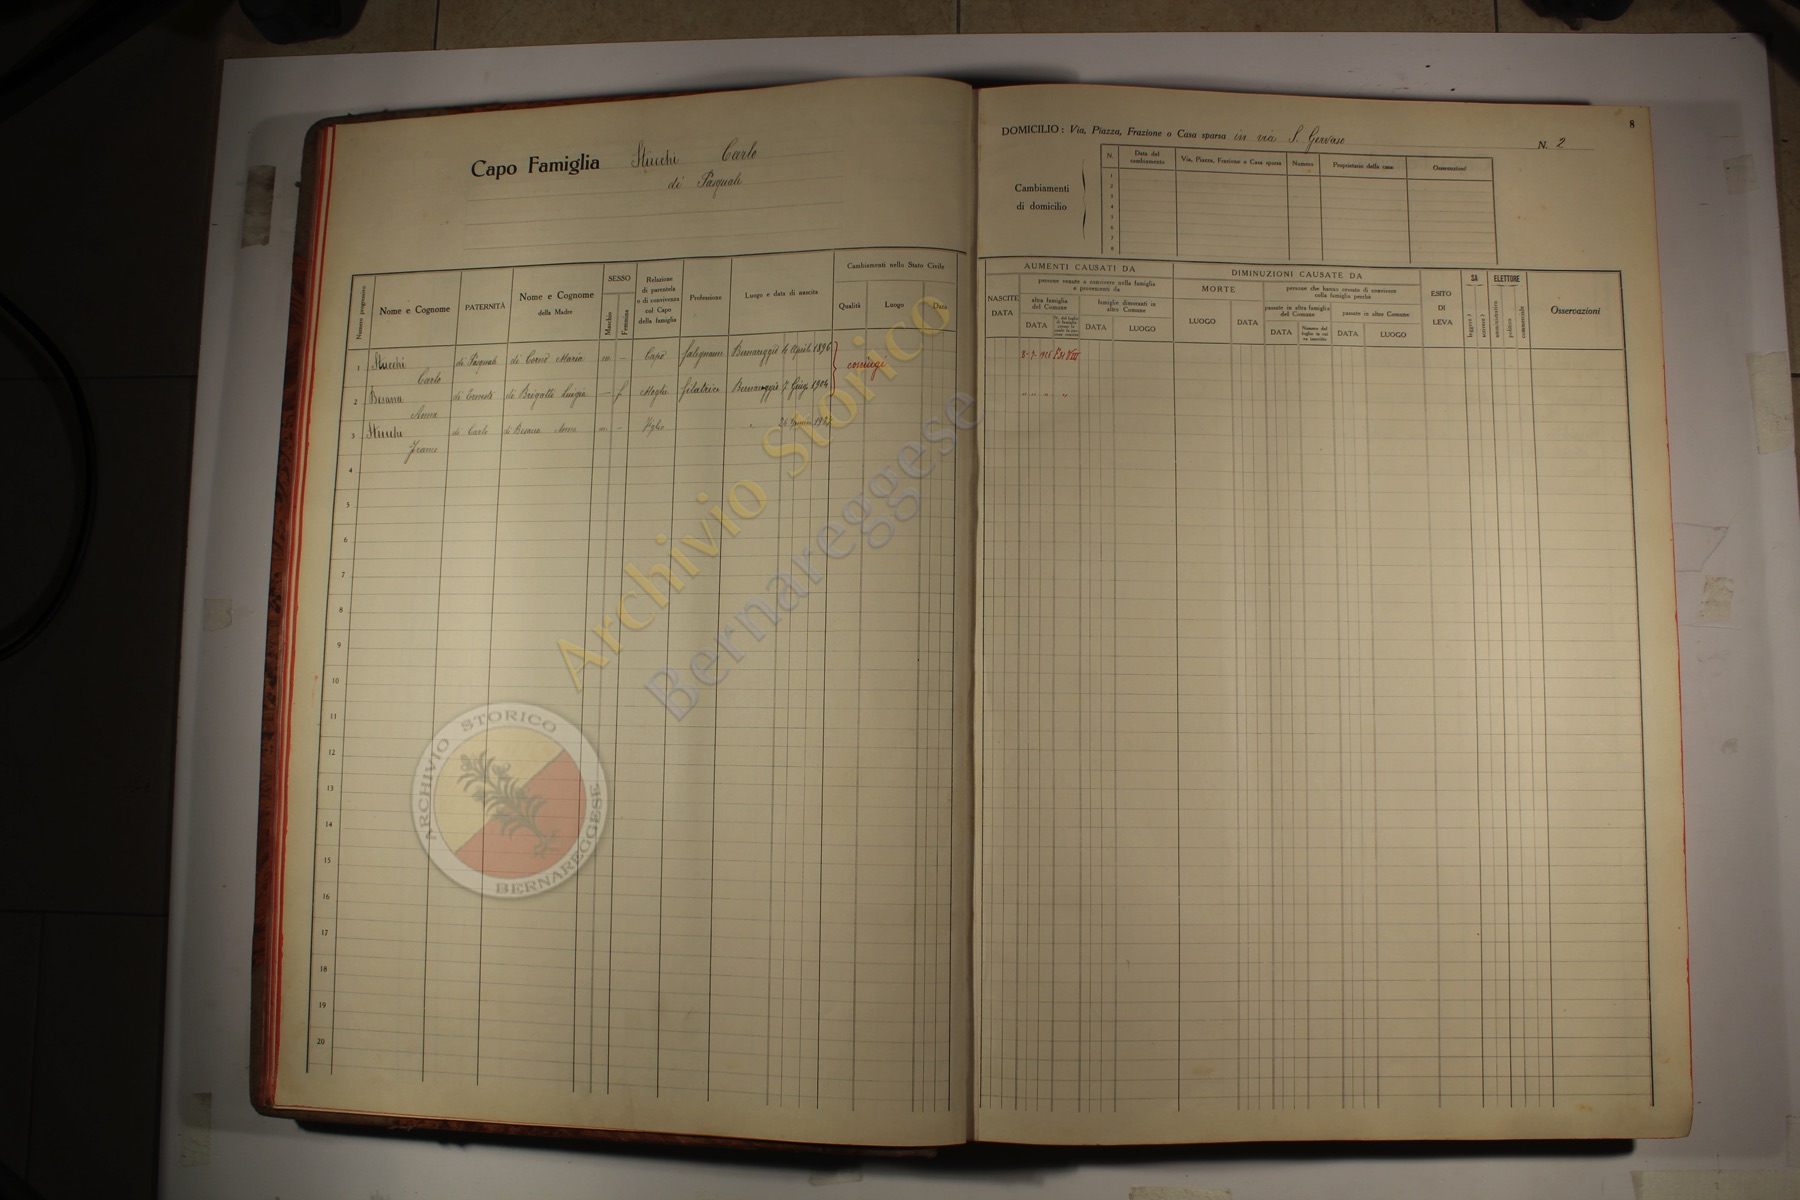 Capo Famiglia Stucchi Carlo
di Pasquale
8
DOMICILIO: Via, Piazza, Frazione o Casa sparsa in via S. Gervaso N. 2
Cambiamenti di domicilio
N. Data del cambiamento Via, Piazza, Frazione o Casa sparsa Numero Proprietario della casa Osservazioni
1
2
3
4
5
6
7
8
Numero progressivo
Nome e Cognome
PATERNITÀ
Nome e Cognome
della Madre
SESSO
Maschio
Femmina
Relazione
di parentela
o di convivenza
col Capo
della famiglia
Professione
Luogo e data di nascita
Cambiamenti nello Stato Civile
Qualità Luogo Data
AUMENTI CAUSATI DA
NASCITE
DATA
persone venute a convivere nella famiglia
e provenienti da
altra famiglia
del Comune
DATA
famiglie dimoranti in
altro Comune
DATA LUOGO
DIMINUZIONI CAUSATE DA
MORTE
LUOGO DATA
persone che hanno cessato di convivere
colla famiglia perchè
passate in altra famiglia
del Comune
DATA
passate in altro Comune
DATA LUOGO
ESITO
DI
LEVA
SA
leggere?
scrivere?
ELETTORE
amministrativo
politico
commerciale
Osservazioni
1 Stucchi Carlo di Pasquale di Cornò Maria m – Capo falegname Bernareggio 4 Aprile 1896 coniugi
2 Besana di Ernesto di Brigatti Luigia – f Moglie filatrice Bernareggio 7 Giug. 1904
3 Stucchi Franco di Carlo di Besana m – Figlio
4
5
6
7
8
9
10
11
12
13
14
15
16
17
18
19
20
Archivio Storico
Bernareggese
ARCHIVIO STORICO
BERNAREGGESE